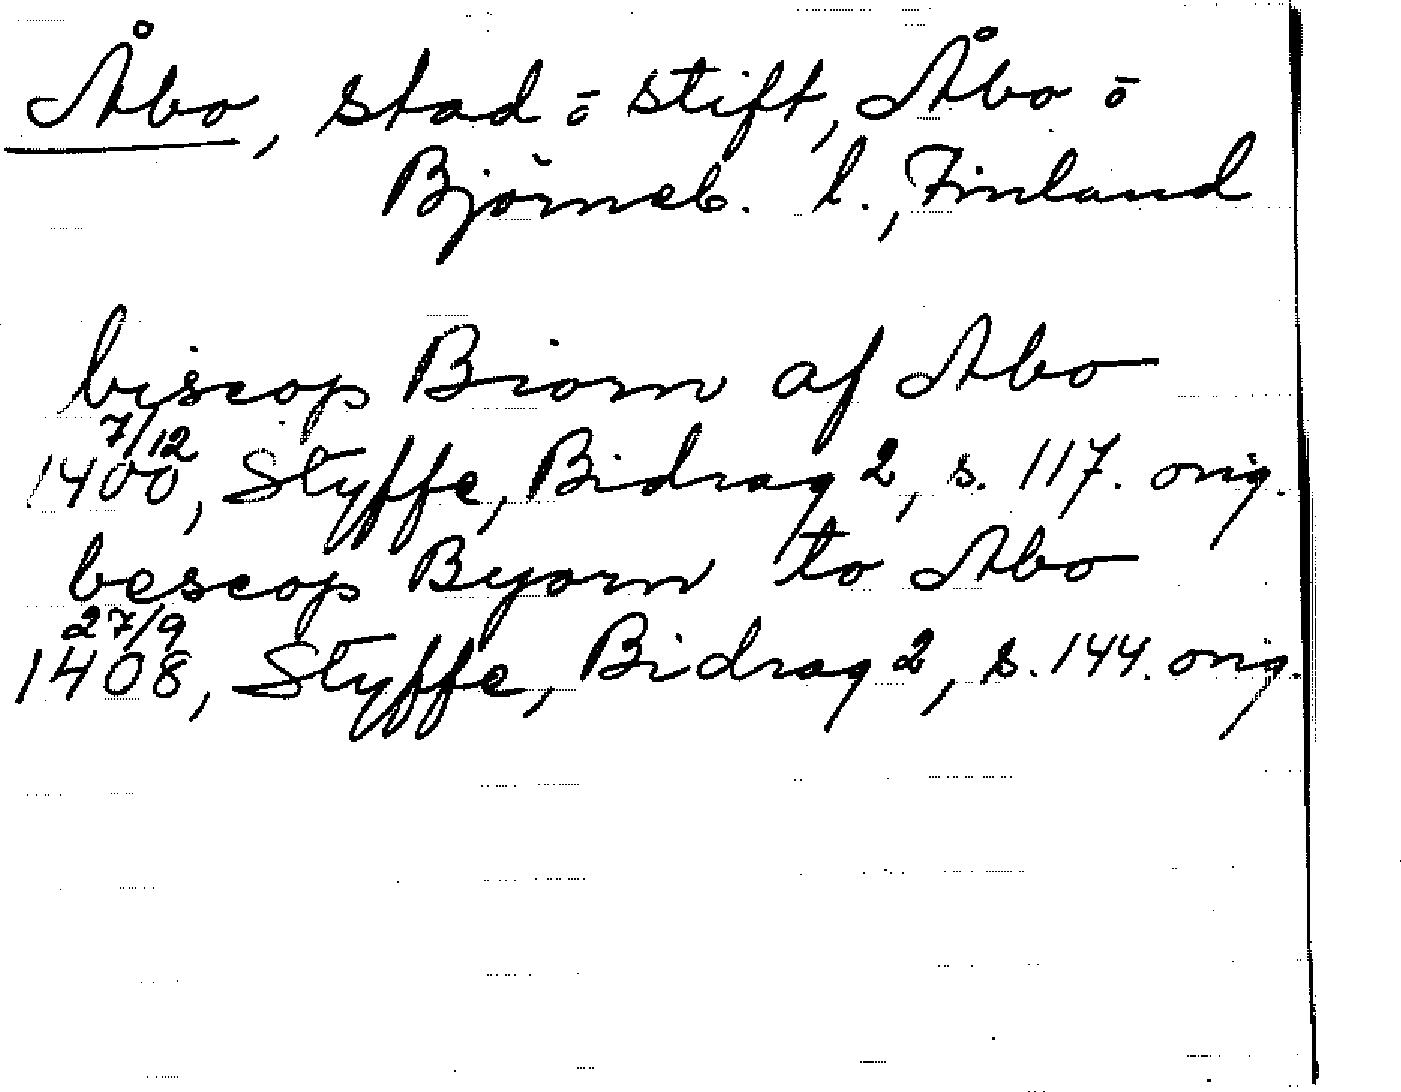 Åbo, stad o stift, Åbo o
Björneb. l., Finland
biscop Biorn af Abo
7/12
1400, Styffe, Bidrag 2, s. 117. orig.
bescop Byorn to Abo
27/9
1408, Styffe, Bidrag 2, s. 144. orig.